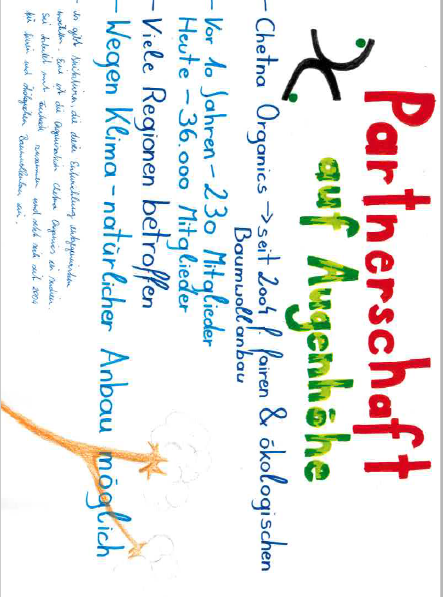 Partnerschaft
auf Augenhöhe
- Chetna Organics → seit 2004 f. fairen & ökologischen
Baumwollanbau
- Vor 10 Jahren - 230 Mitglieder
Heute - 36.000 Mitglieder
- Viele Regionen betroffen
- Wegen Klima - natürlicher Anbau möglich
- Es gibt Initiativen, die dieser Entwicklung entgegenwirken
möchten. Eine ist die Organisation Chetna Organics in Indien.
Sie arbeitet mit zusammen und setzt sich seit 2004
für fairen und ökologischen Baumwollanbau ein.